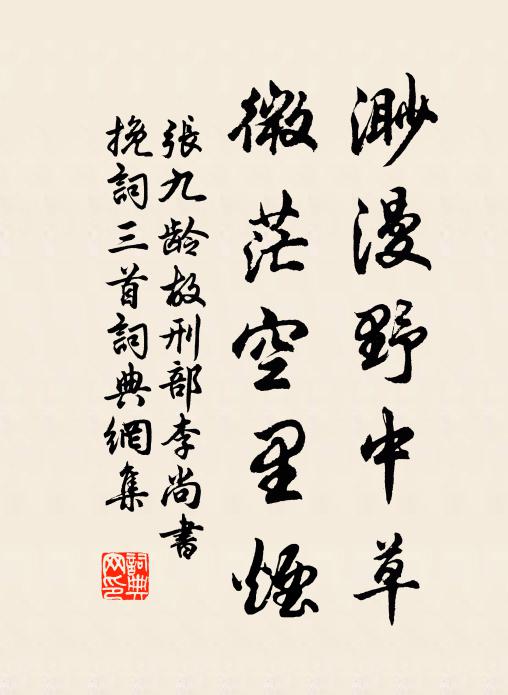 渺漫野中草
微茫空里煙
張九龄故刑部李尚書
挽詞三首詞典網集
詞典网印